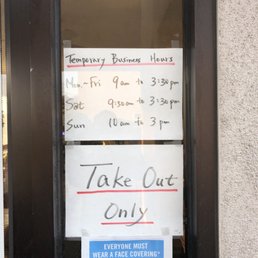 Temporary Business Hours
Mon.~Fri 9am to 3:30pm
Sat 9:30am to 3:30pm
Sun 10am to 3pm
Take Out
Only
EVERYONE MUST
WEAR A FACE COVERING*